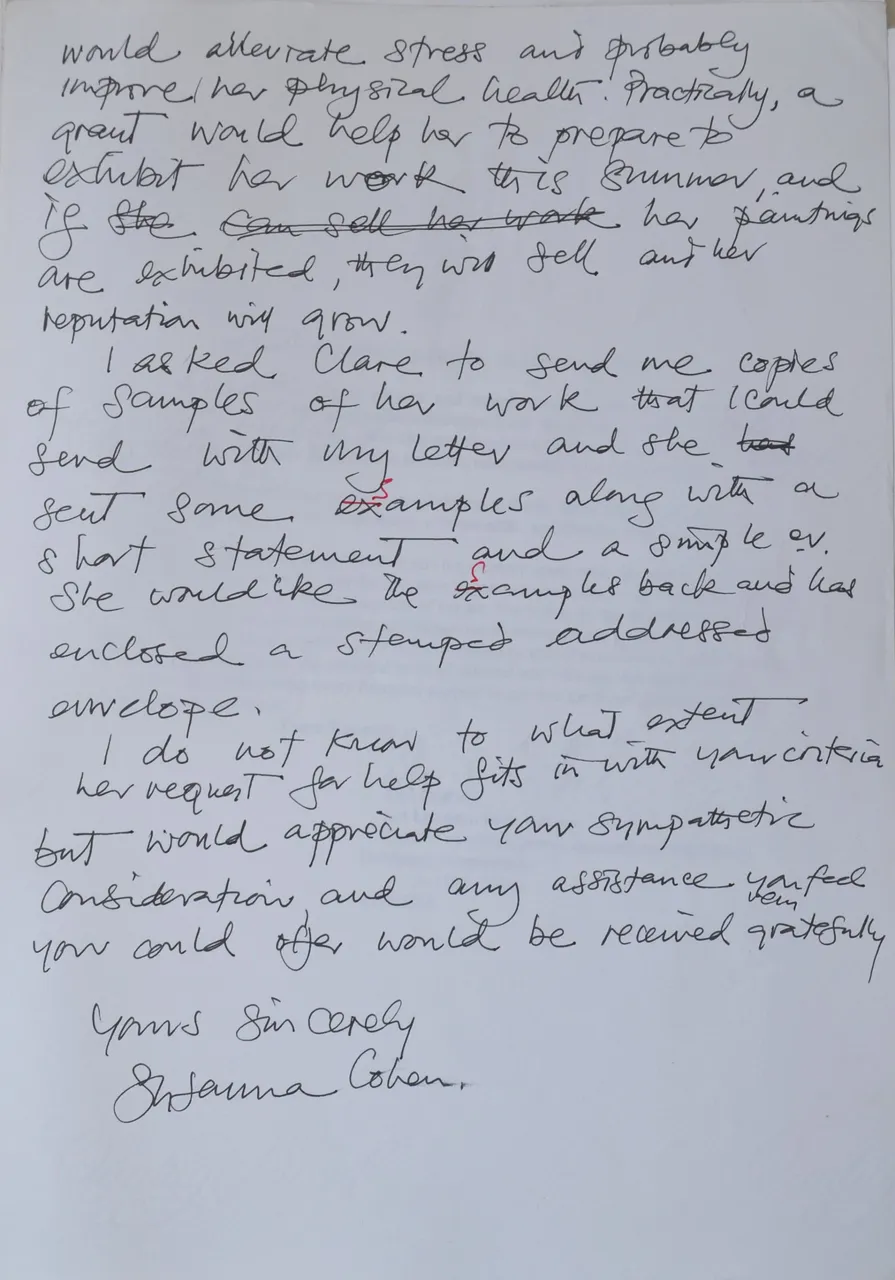 would alleviate stress and probably
improve her physical health. Practically, a
grant would help her to prepare to
exhibit her work this summer, and
if she can sell her work her paintings
are exhibited, they will sell and her
reputation will grow.
I asked Clare to send me copies
of samples of her work that I could
send with my letter and she had
sent some samples along with a
short statement and a simple cv.
She would like the samples back and has
enclosed a stamped addressed
envelope.
I do not know to what extent
her request for help fits in with your criteria
but would appreciate your sympathetic
consideration, and any assistance you feel
you could offer would be received very gratefully
Yours Sincerely
Susanna Cohen.